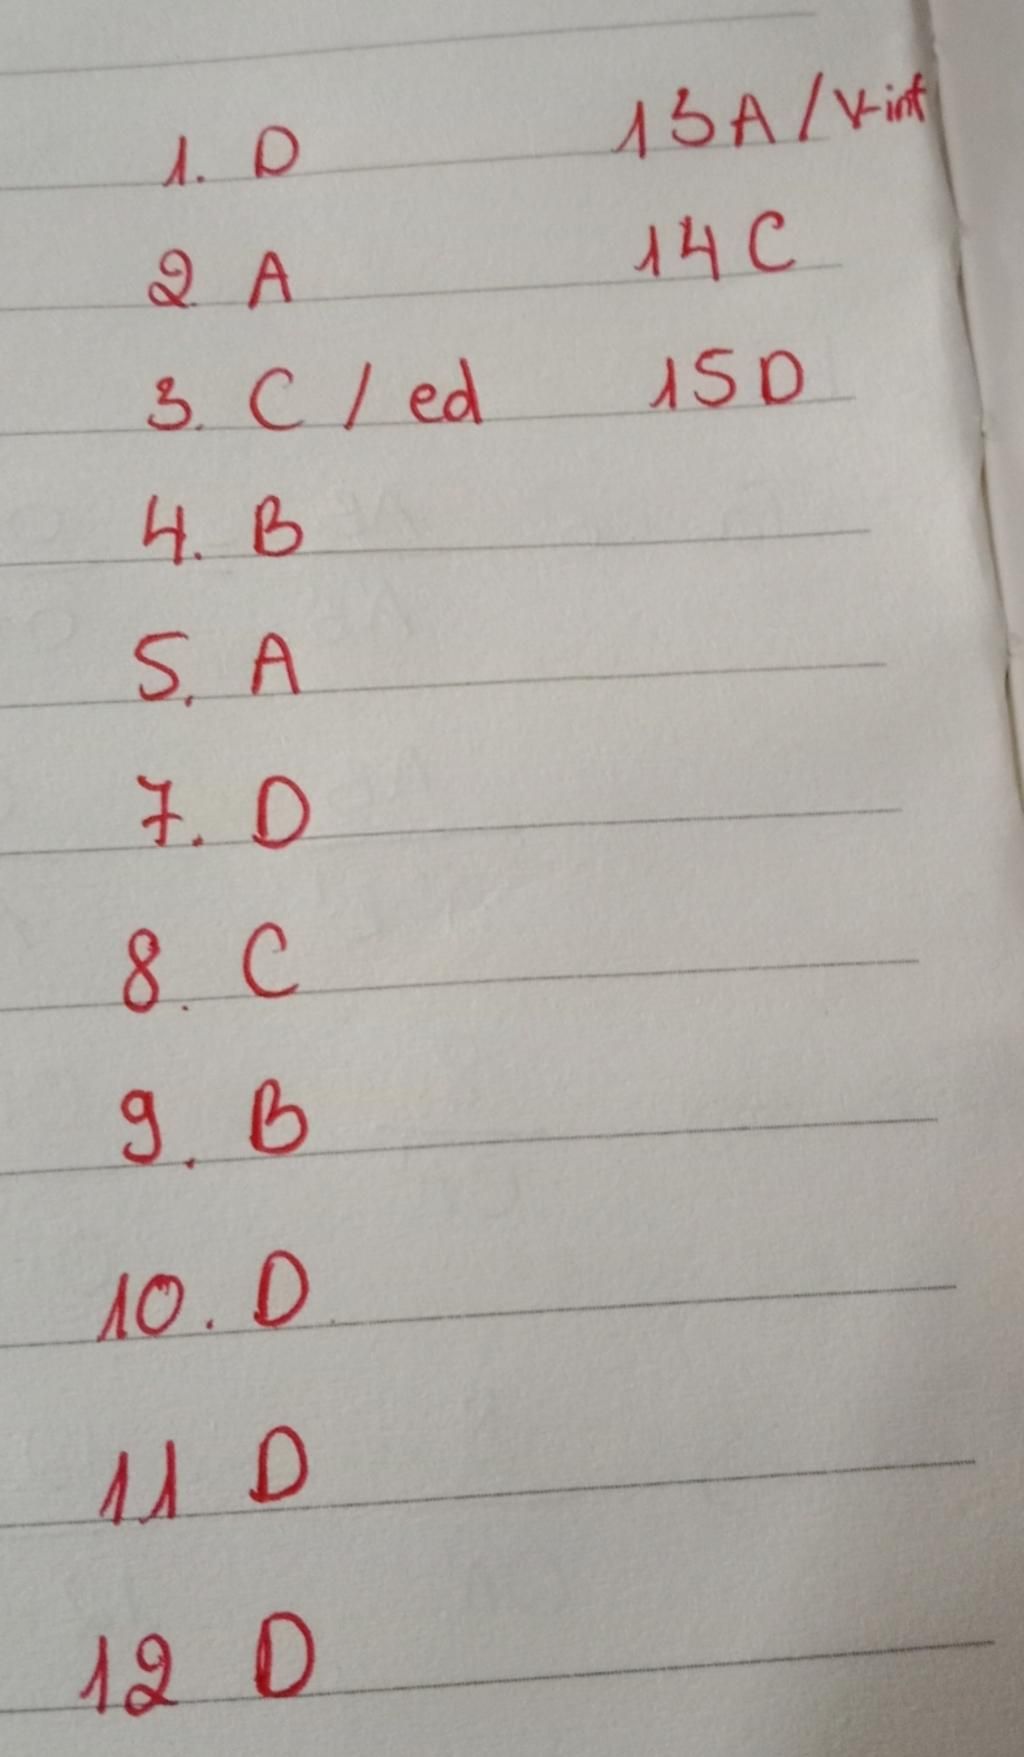 1. D
2 A
3. C / ed
4. B
5. A
7. D
8. C
9. B
10. D
11 D
12 D
13A / V-inf
14 C
15D